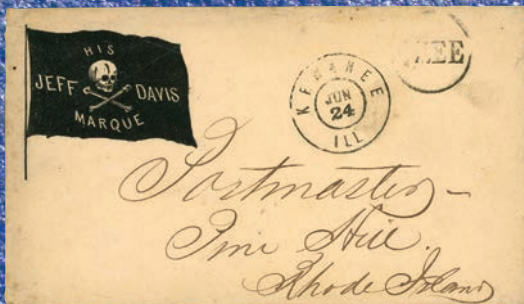 HIS
JEFF DAVIS
MARQUE
KEWANEE
JUN
24
ILL
FREE
Postmaster –
Pine Hill.
Rhode Island